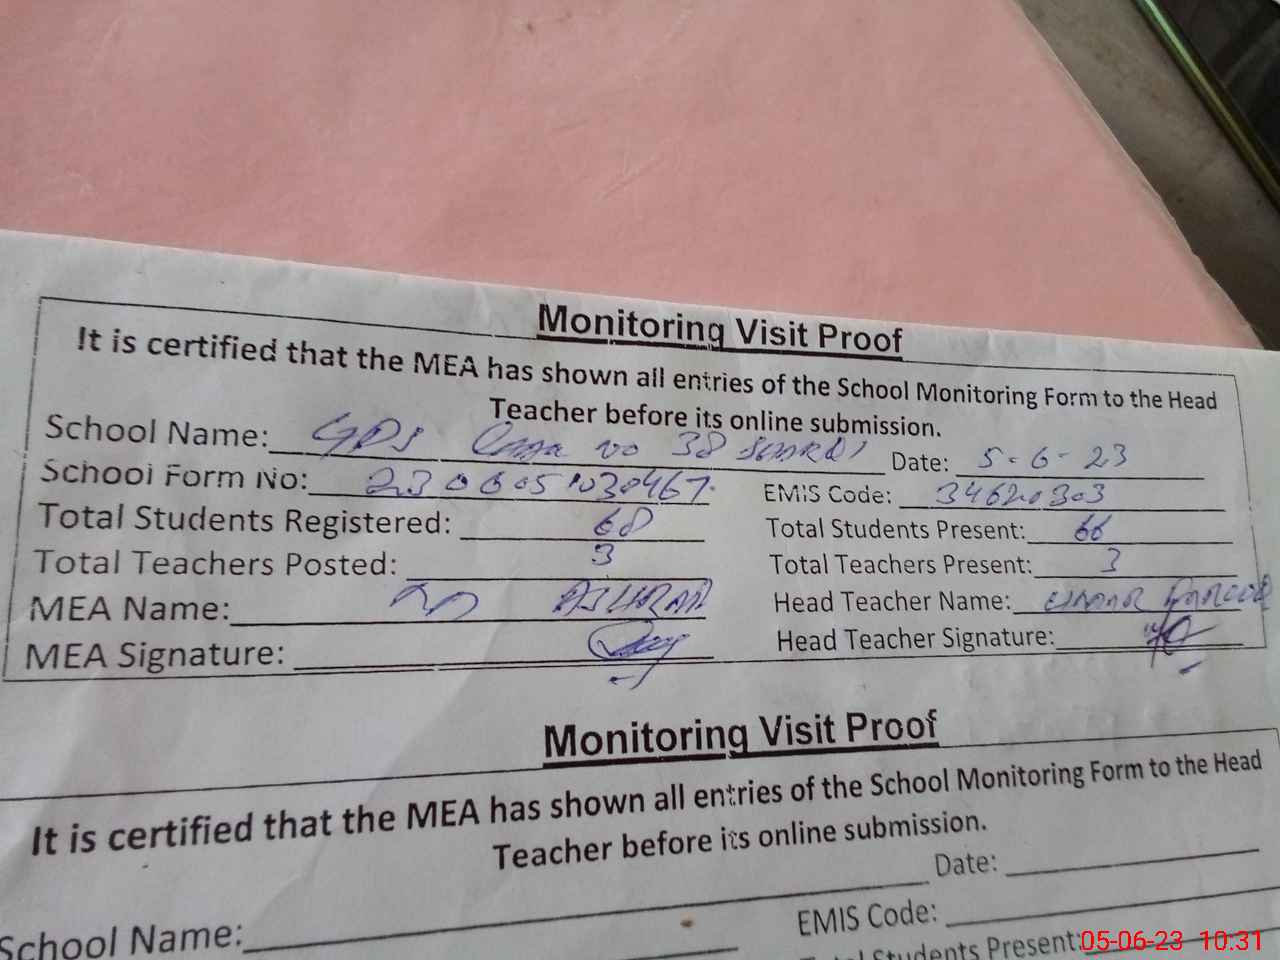 Monitoring Visit Proof
It is certified that the MEA has shown all entries of the School Monitoring Form to the Head
Teacher before its online submission.
School Name: GPS 38 Date: 5-6-23
School Form No: EMIS Code: 34620303
Total Students Registered: 68 Total Students Present: 66
Total Teachers Posted: 3 Total Teachers Present: 3
MEA Name: M ASHRAF Head Teacher Name:
MEA Signature: Head Teacher Signature:
Monitoring Visit Proof
It is certified that the MEA has shown all entries of the School Monitoring Form to the Head
Teacher before its online submission.
Date:
School Name: EMIS Code:
Total Students Present:
05-06-23 10:31